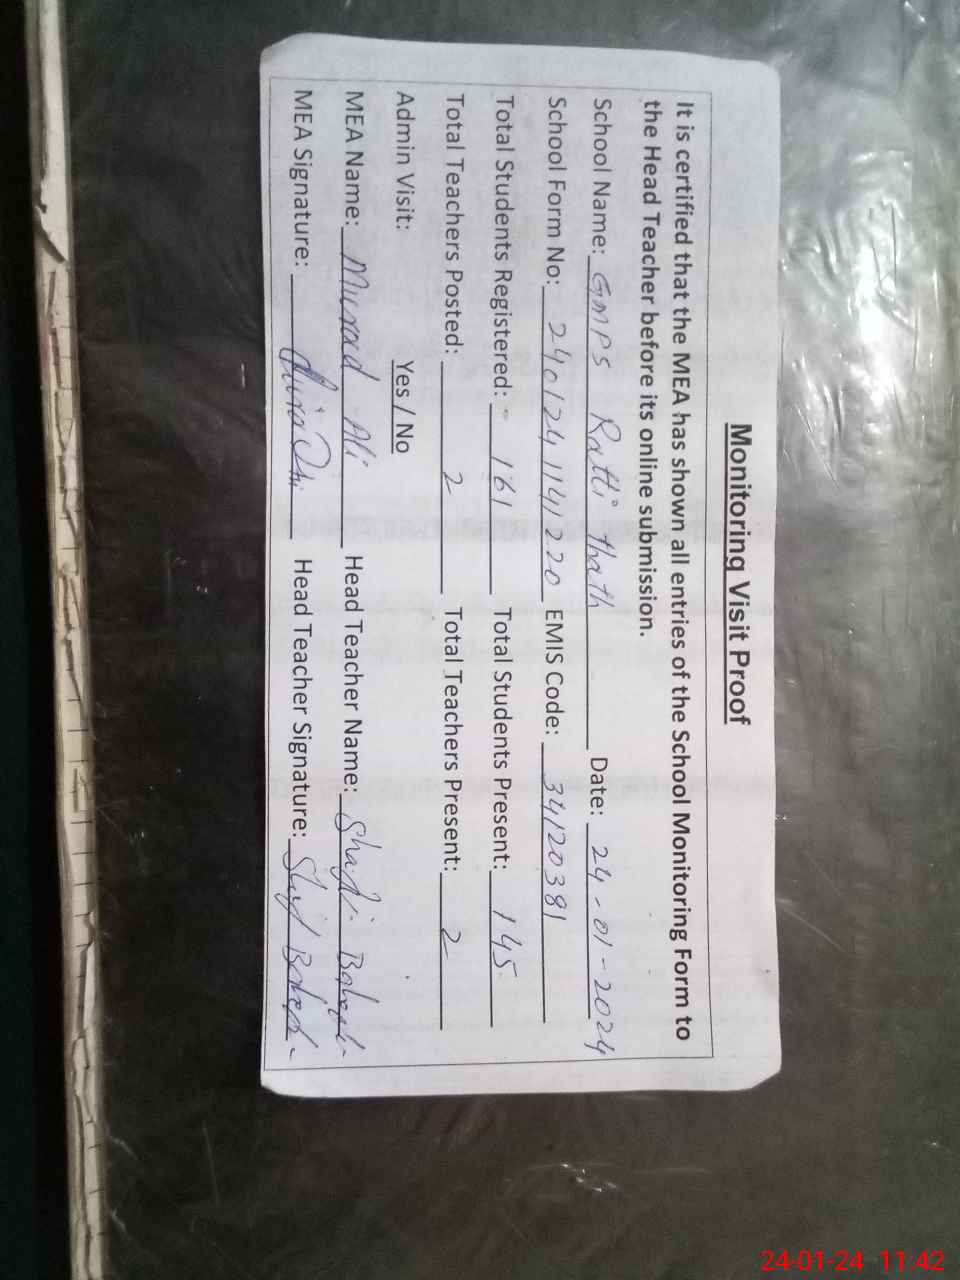 Monitoring Visit Proof
It is certified that the MEA has shown all entries of the School Monitoring Form to
the Head Teacher before its online submission.
School Name: GMPS Ratti thath Date: 24-01-2024
School Form No: 2401241141220 EMIS Code: 34120381
Total Students Registered: 161 Total Students Present: 145
Total Teachers Posted: 2 Total Teachers Present: 2
Admin Visit: Yes / No
MEA Name: Murad Ali Head Teacher Name:
MEA Signature: Head Teacher Signature:
24-01-24 11:42